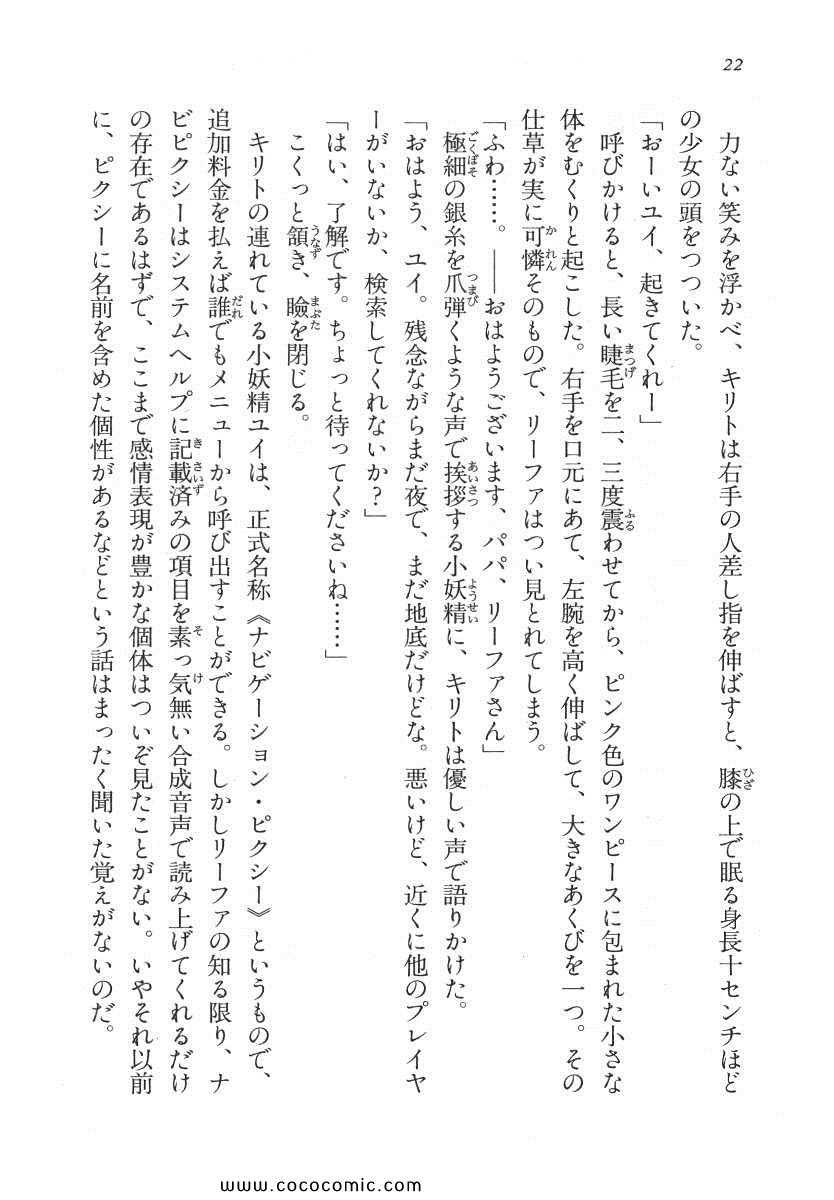 22
力ない笑みを浮かべ、キリトは右手の人差し指を伸ばすと、膝の上で眠る身長十センチほど
の少女の頭をつついた。
「おーいユイ、起きてくれー」
呼びかけると、長い睫毛を二、三度震わせてから、ピンク色のワンピースに包まれた小さな
体をむくりと起こした。右手を口元にあて、左腕を高く伸ばして、大きなあくびを一つ。その
仕草が実に可憐そのもので、リーファはつい見とれてしまう。
「ふわ……。――おはようございます、パパ、リーファさん」
極細の銀糸を爪弾くような声で挨拶する小妖精に、キリトは優しい声で語りかけた。
「おはよう、ユイ。残念ながらまだ夜で、まだ地底だけどな。悪いけど、近くに他のプレイヤ
ーがいないか、検索してくれないか?」
「はい、了解です。ちょっと待ってくださいね……」
こくっと頷き、瞼を閉じる。
キリトの連れている小妖精ユイは、正式名称《ナビゲーション・ピクシー》というもので、
追加料金を払えば誰でもメニューから呼び出すことができる。しかしリーファの知る限り、ナ
ビピクシーはシステムヘルプに記載済みの項目を素っ気無い合成音声で読み上げてくれるだけ
の存在であるはずで、ここまで感情表現が豊かな個体はついぞ見たことがない。いやそれ以前
に、ピクシーに名前を含めた個性があるなどという話はまったく聞いた覚えがないのだ。
www.cococomic.com/